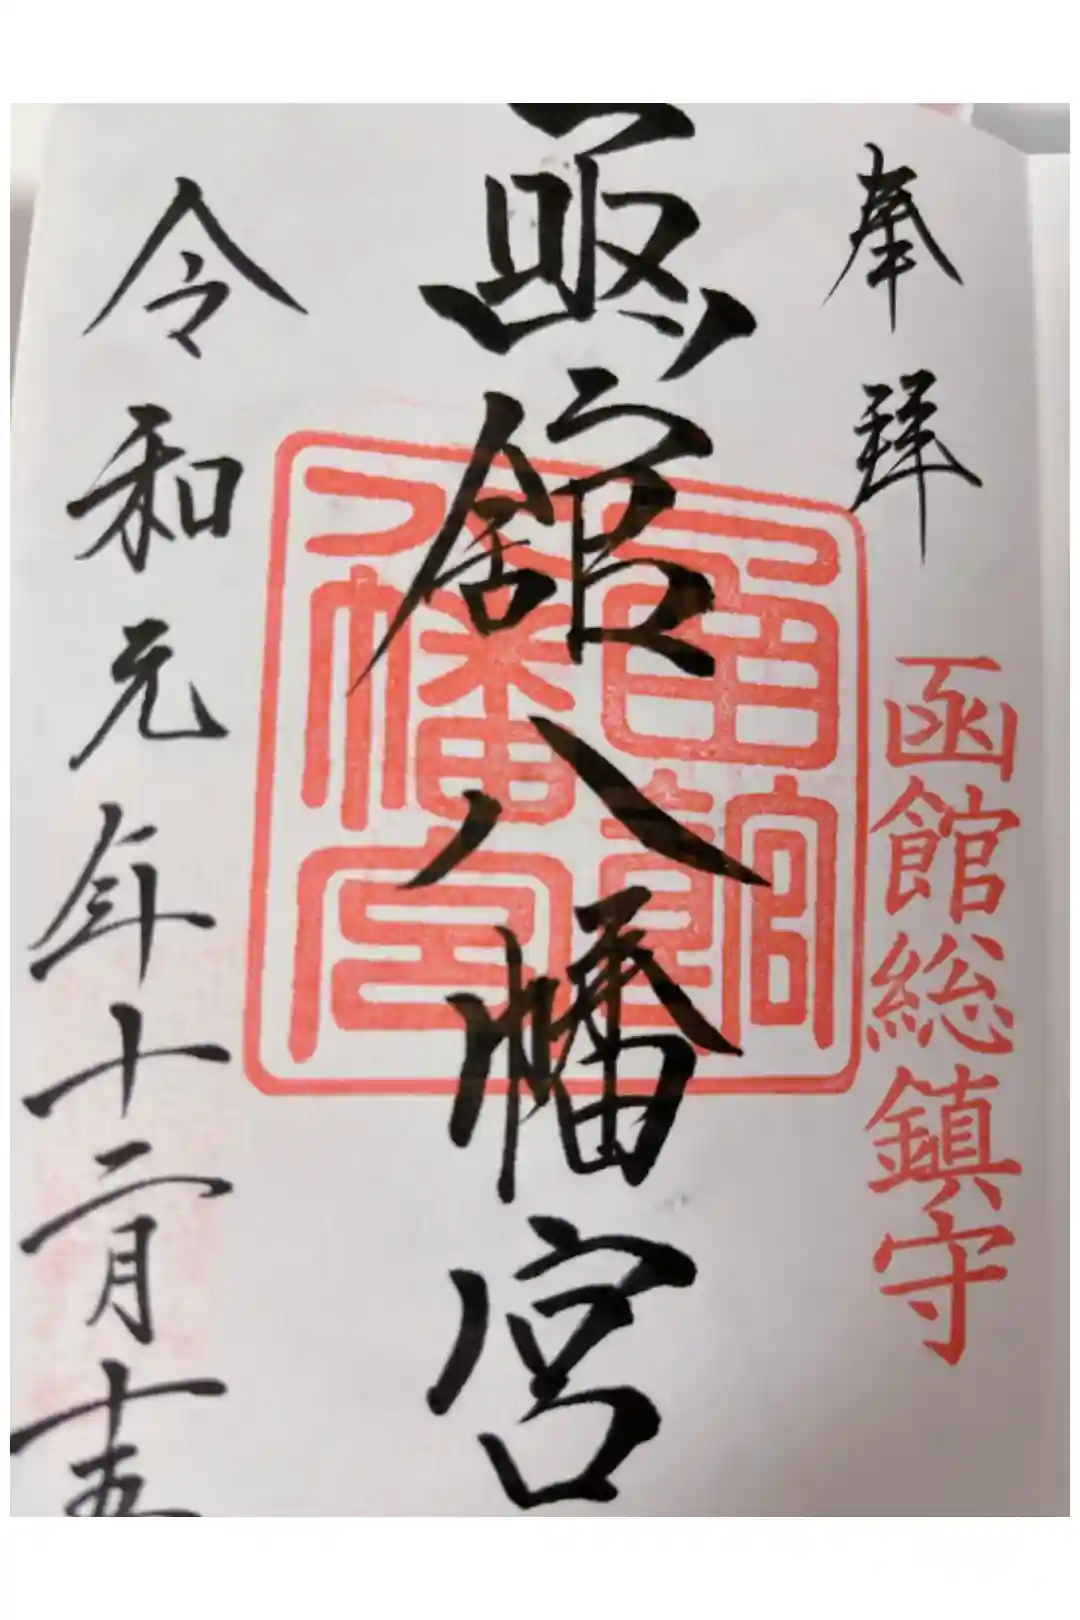 奉拝
函館総鎮守
函館八幡宮
函館八幡宮
令和元年十二月十五